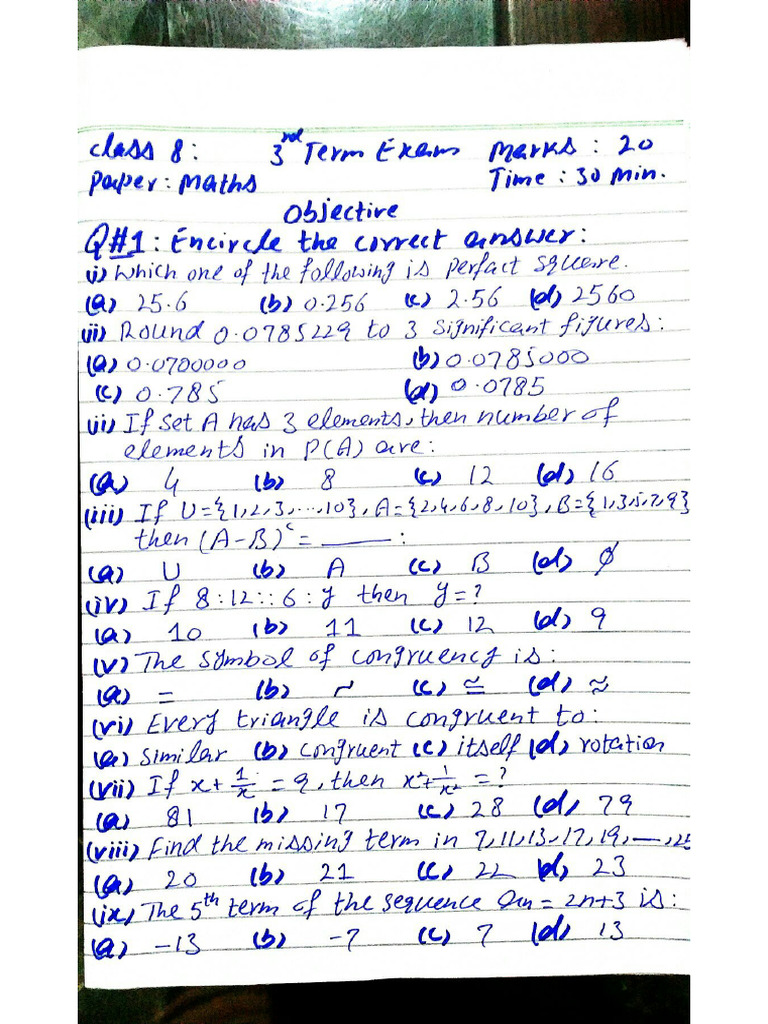 class 8: 3rd Term Exam Marks: 20
Paper: Maths Time: 30 Min.
Objective
Q#1: Encircle the correct answer:
(i) Which one of the following is perfact square.
(a) 25.6 (b) 0.256 (c) 2.56 (d) 2560
(ii) Round 0.0785229 to 3 significant figures:
(a) 0.0700000 (b) 0.0785000
(c) 0.785 (d) 0.0785
(ii) If set A has 3 elements, then number of
elements in P(A) are:
(a) 4 (b) 8 (c) 12 (d) 16
(iii) If U={1,2,3,...,10}, A={2,4,6,8,10}, B={1,3,5,7,9}
then (A-B)ᶜ = ____:
(a) U (b) A (c) B (d) ϕ
(iv) If 8:12::6:y then y=?
(a) 10 (b) 11 (c) 12 (d) 9
(v) The symbol of congruency is:
(a) = (b) ~ (c) ≅ (d) ≈
(vi) Every triangle is congruent to:
(a) similar (b) congruent (c) itself (d) rotation
(vii) If x+1/x = 9, then x²+1/x² = ?
(a) 81 (b) 17 (c) 28 (d) 79
(viii) Find the missing term in 7,11,13,17,19,—,25
(a) 20 (b) 21 (c) 22 (d) 23
(ix) The 5th term of the sequence an = 2n+3 is:
(a) -13 (b) -7 (c) 7 (d) 13